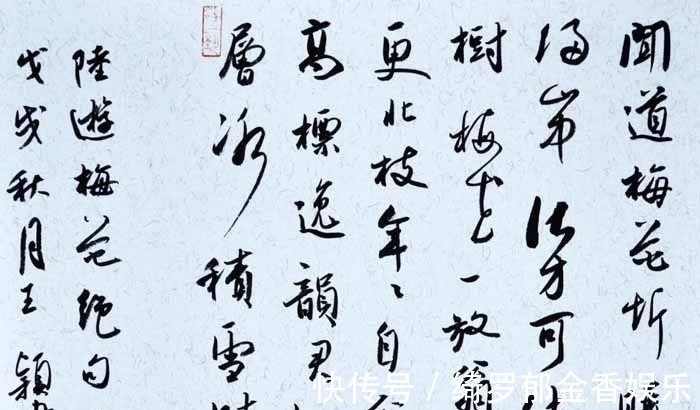 聞道梅花坼
山中何方可
樹梅花一放翁
更北枝年々自
高標逸韻君
層冰積雪
陸遊梅花絕句
戊戌秋月王穎
快传号 / 绮罗郁金香娱乐